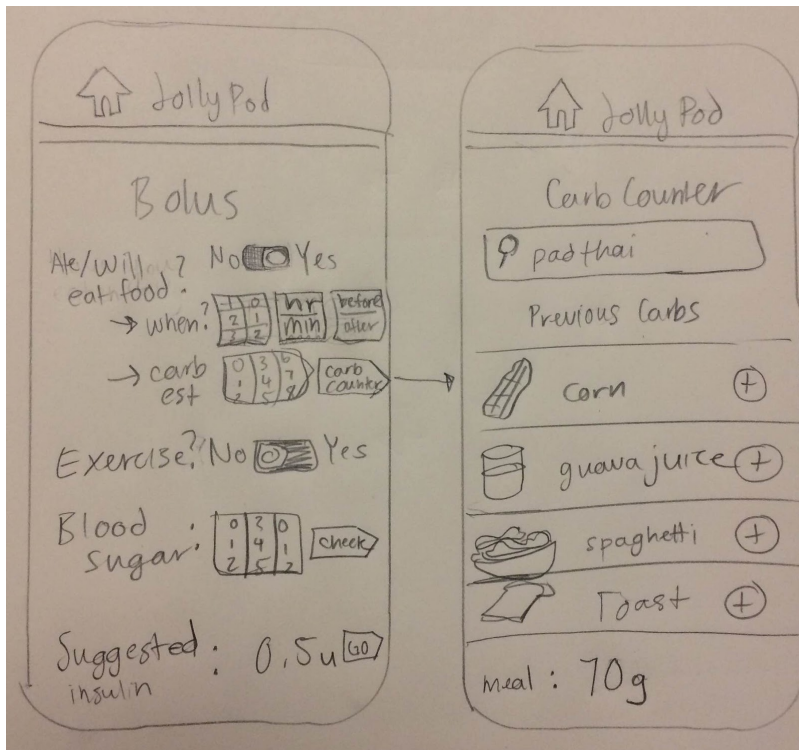 Jolly Pod
Bolus
Ate/Will eat food?
No Yes
→ when?
1 0
2 1
3 2
hr
min
before
after
→ carb est
0 3 6
1 4 7
2 5 8
carb counter
Exercise? No Yes
Blood sugar:
0 3 0
1 4 1
2 5 2
check
Suggested insulin : 0.5u GO
Jolly Pod
Carb Counter
pad thai
Previous Carbs
corn +
guava juice +
spaghetti +
Toast +
meal : 70g